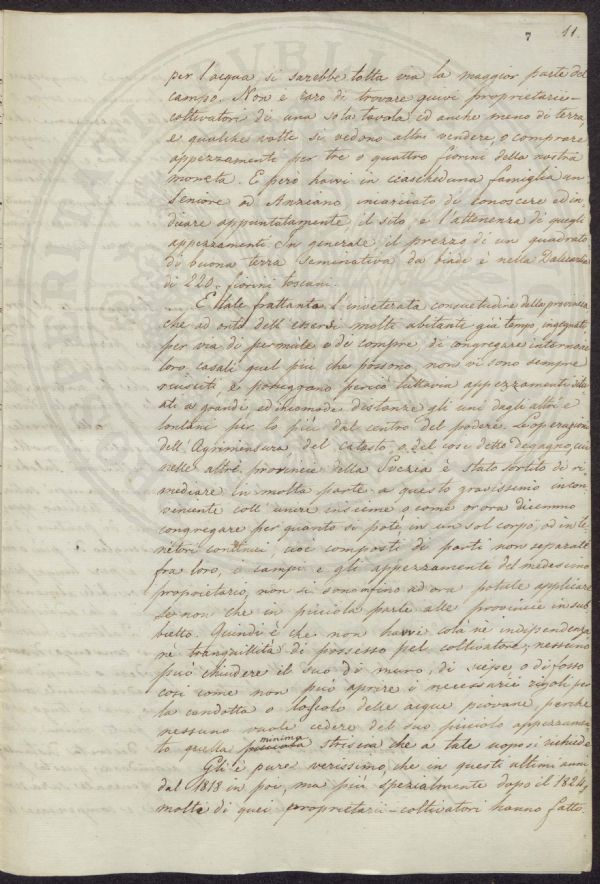 7 11.
per l'acqua si sarebbe tolta via la maggior parte del
campo. Non è raro di trovare quivi proprietarii-
coltivatori di una sola tavola, ed anche meno di terra,
e qualche volte si vedono altri vendere, o comprare
appezzamenti per tre o quattro fiorini della nostra
moneta. E però havvi in ciascheduna famiglia un
Seniore od Anziano incaricato di conoscere ed in-
dicare appuntatamente il sito, e l'attenenza di quegli
appezzamenti. In generale il prezzo di un quadrato
di buona terra seminativa da biade è nella Dalecarlia
di 220. fiorini toscani.
E tale frattanto l'inveterata consuetudine della provincia
che ad onta dell'essersi molti abitanti già tempo ingegnati
per via di permute o di compre, di congregare intorno ai
loro casali quel più che possono, non vi sono sempre
riusciti, e posseggono perciò tuttavia appezzamenti situ-
ati a grandi, ed incomode distanze gli uni dagli altri e
lontani per lo più dal centro del podere. Le operazioni
dell'Agrimensura, del catasto, o del così detto
nelle altre provincie della Svezia è stato sortito di ri-
mediare in molta parte a questo gravissimo incon-
veniente coll'unire insieme o come or ora dicemmo
congregare per quanto si potè in un sol corpo, od in te-
nitori continui, cioè composti di parti non separate
fra loro, i campi e gli appezzamenti del medesimo
proprietario, non si sono fino ad ora potute applicare
se non che in picciola parte alle provincie in sub-
bietto. Quindi è che non havvi colà nè indipendenza
nè tranquillità di possesso pel coltivatore; nessuno
può chiudere il suo di muro, di siepe o di fosso
così come non può aprire i necessarii rigoli per
la condotta o lo scolo delle acque piovane, perchè
nessuno vuole cedere del suo picciolo appezzamen-
to quella minima striscia che a tale uopo si richiede.
Gli è pure verissimo, che in questi ultimi anni
dal 1818 in poi, ma più spezialmente dopo il 1824,
molti di quei proprietarii-coltivatori hanno fatto